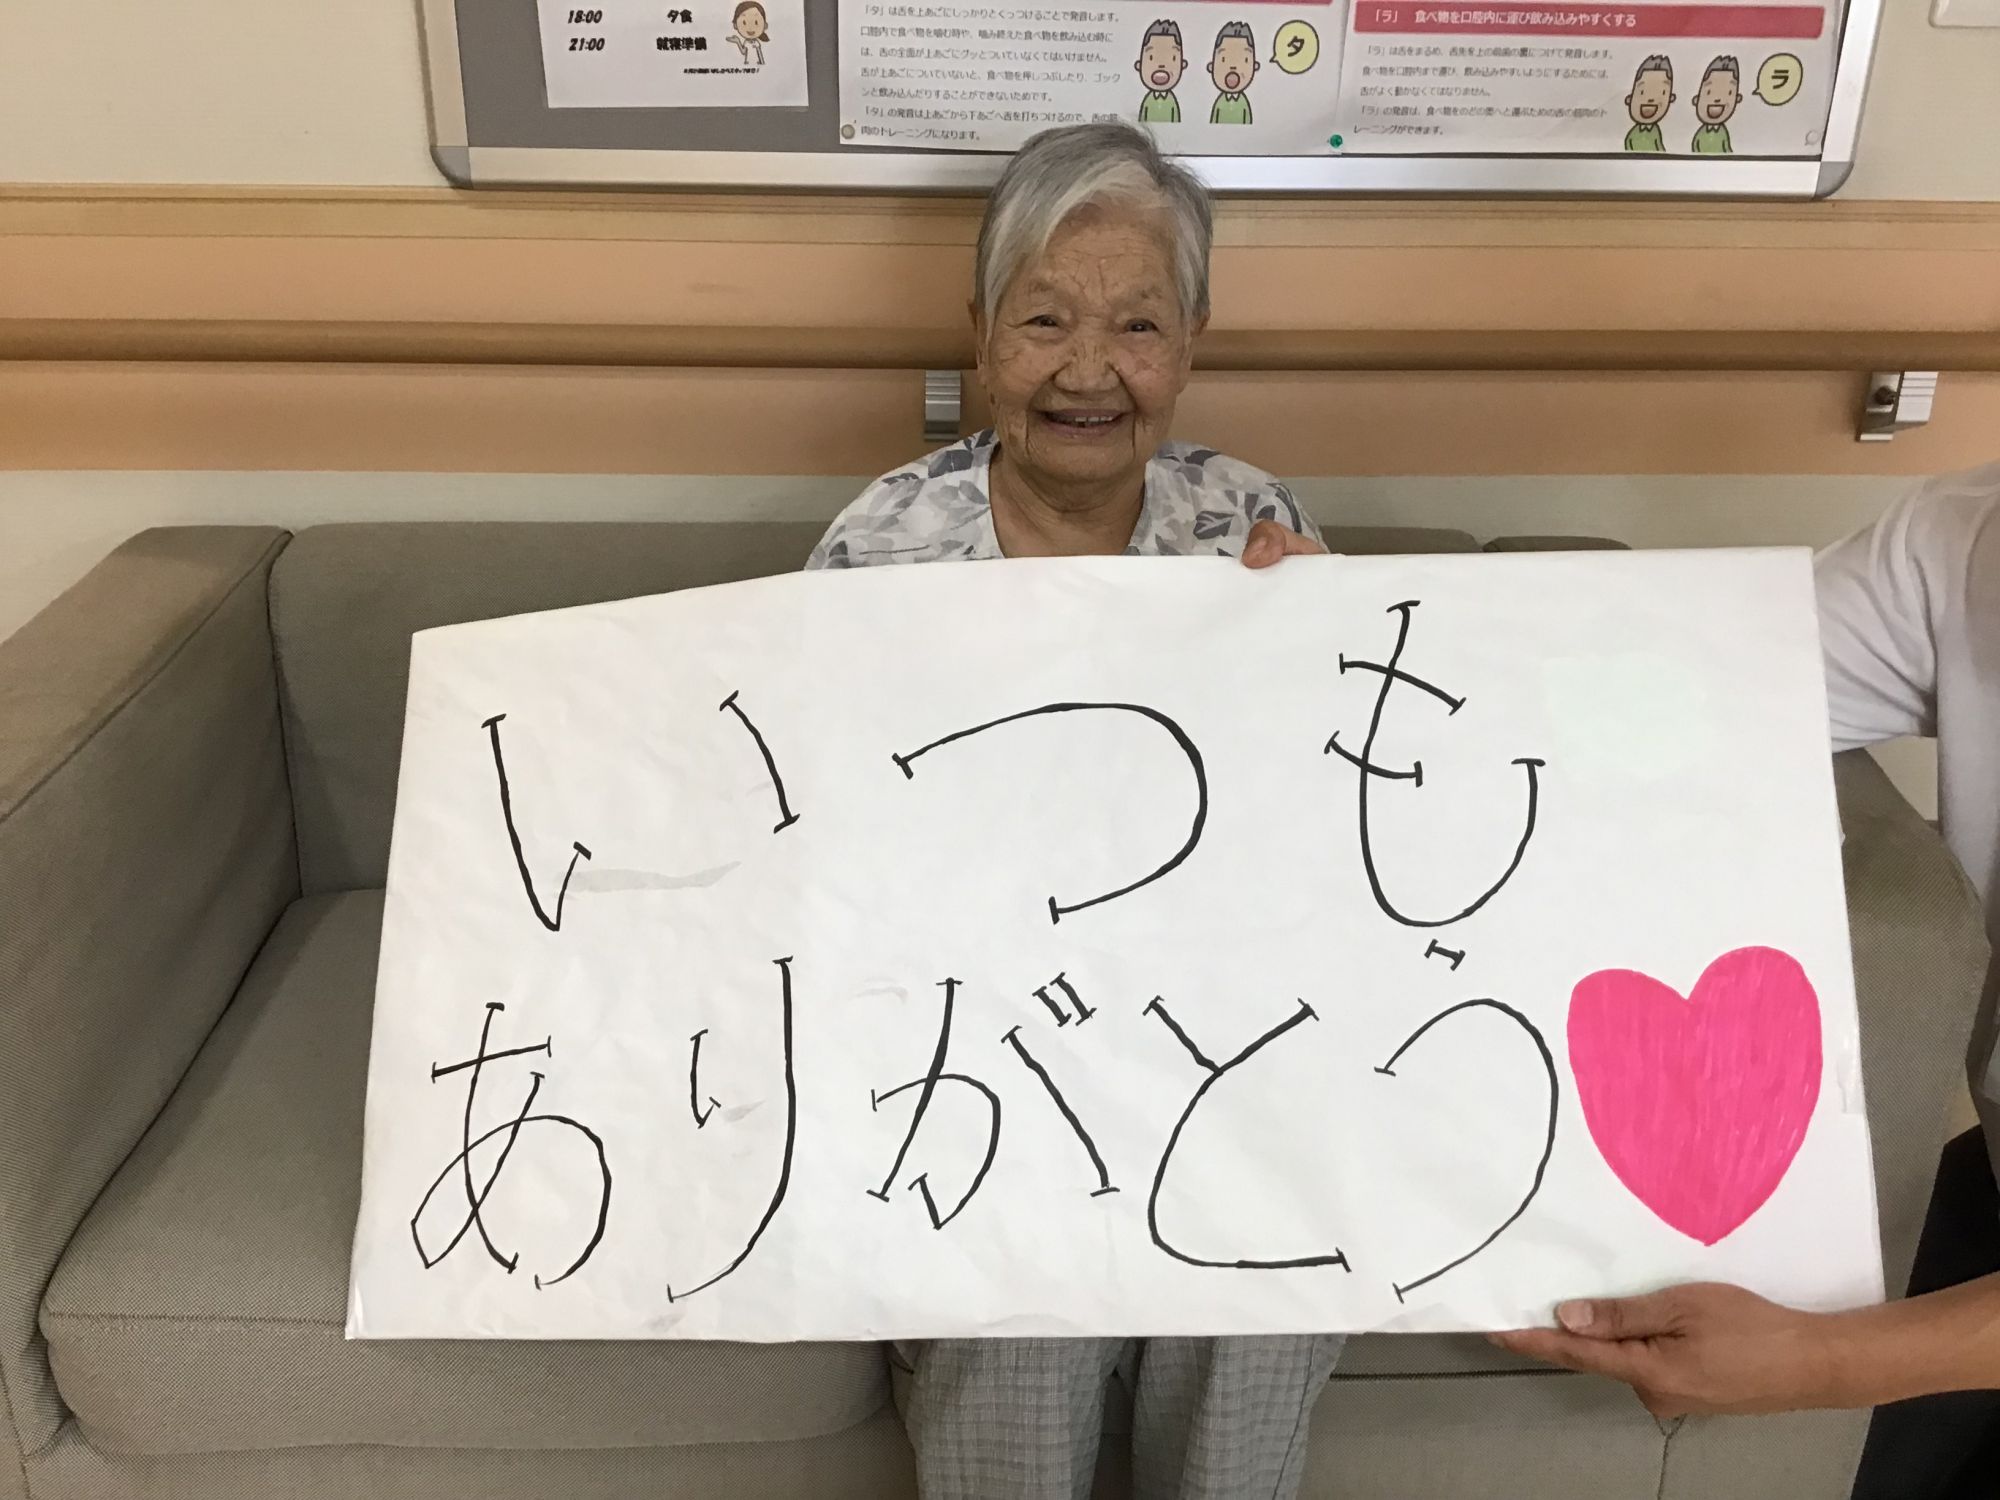 18:00 夕食
21:00 就寝準備
「タ」は舌を上あごにしっかりとくっつけることで発音します。
口腔内で食べ物を噛む時や、噛み終えた食べ物を飲み込む時に
は、舌の全面が上あごにグッとついていなくてはいけません。
舌が上あごについていないと、食べ物を押しつぶしたり、ゴック
ンと飲み込んだりすることができないためです。
「タ」の発音は上あごから下あごへ舌を打ちつけるので、舌の筋
肉のトレーニングになります。
タ
「ラ」 食べ物を口腔内に運び飲み込みやすくする
「ラ」は舌をまるめ、舌先を上の前歯の裏につけて発音します。
食べ物を口腔内まで運び、飲み込みやすいようにするためには、
舌がよく動かなくてはなりません。
「ラ」の発音は、食べ物をのどの奥へと運ぶための舌の筋肉のト
レーニングができます。
ラ
いつも
ありがとう